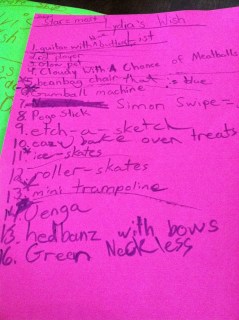 Lydia's Wish
List
1. guitar with
2. cd player
4. Cloudy With A Chance of Meatballs
5. beanbag chair that is blue
6. gumball machine
7. Simon Swipe
8 Pogo Stick
9. etch-a-sketch
10. eazy bake oven treats
11. ice-skates
12. roller-skates
13. mini trampoline
14. Jenga
15. hedbanz with bows
16. Green Neckless